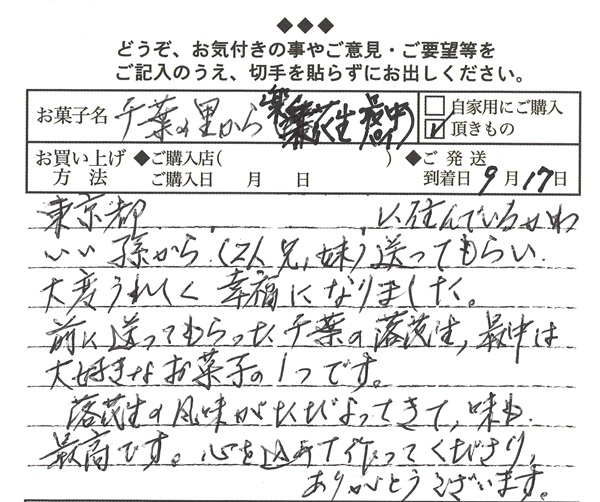 ◆◆◆
どうぞ、お気付きの事やご意見・ご要望等を
ご記入のうえ、切手を貼らずにお出しください。
お菓子名 千葉の里から(楽花生 最中 パイ) □自家用にご購入
☑頂きもの
お買い上げ方法 ◆ご購入店( ) ◆ご発送
ご購入日 月 日 到着日 9月17日
東京都 に住んでいるかわ
いい孫から(2人兄,妹)送ってもらい
大変うれしく幸福になりました。
前に送ってもらった千葉の落花生,最中は
大好きなお菓子の1つです。
落花生の風味がただよってきて,味も
最高です。心を込めて作ってくださり,
ありがとうございます。